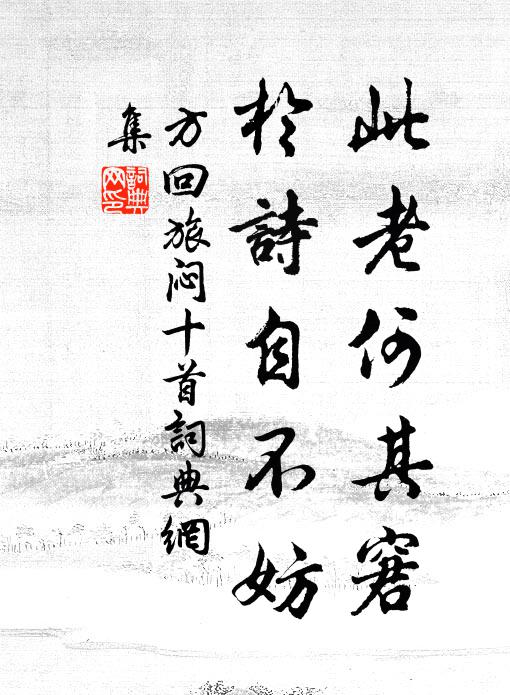 此老何其窘
於詩自不妨
方回旅闷十首詞典網
集
詞典
网印